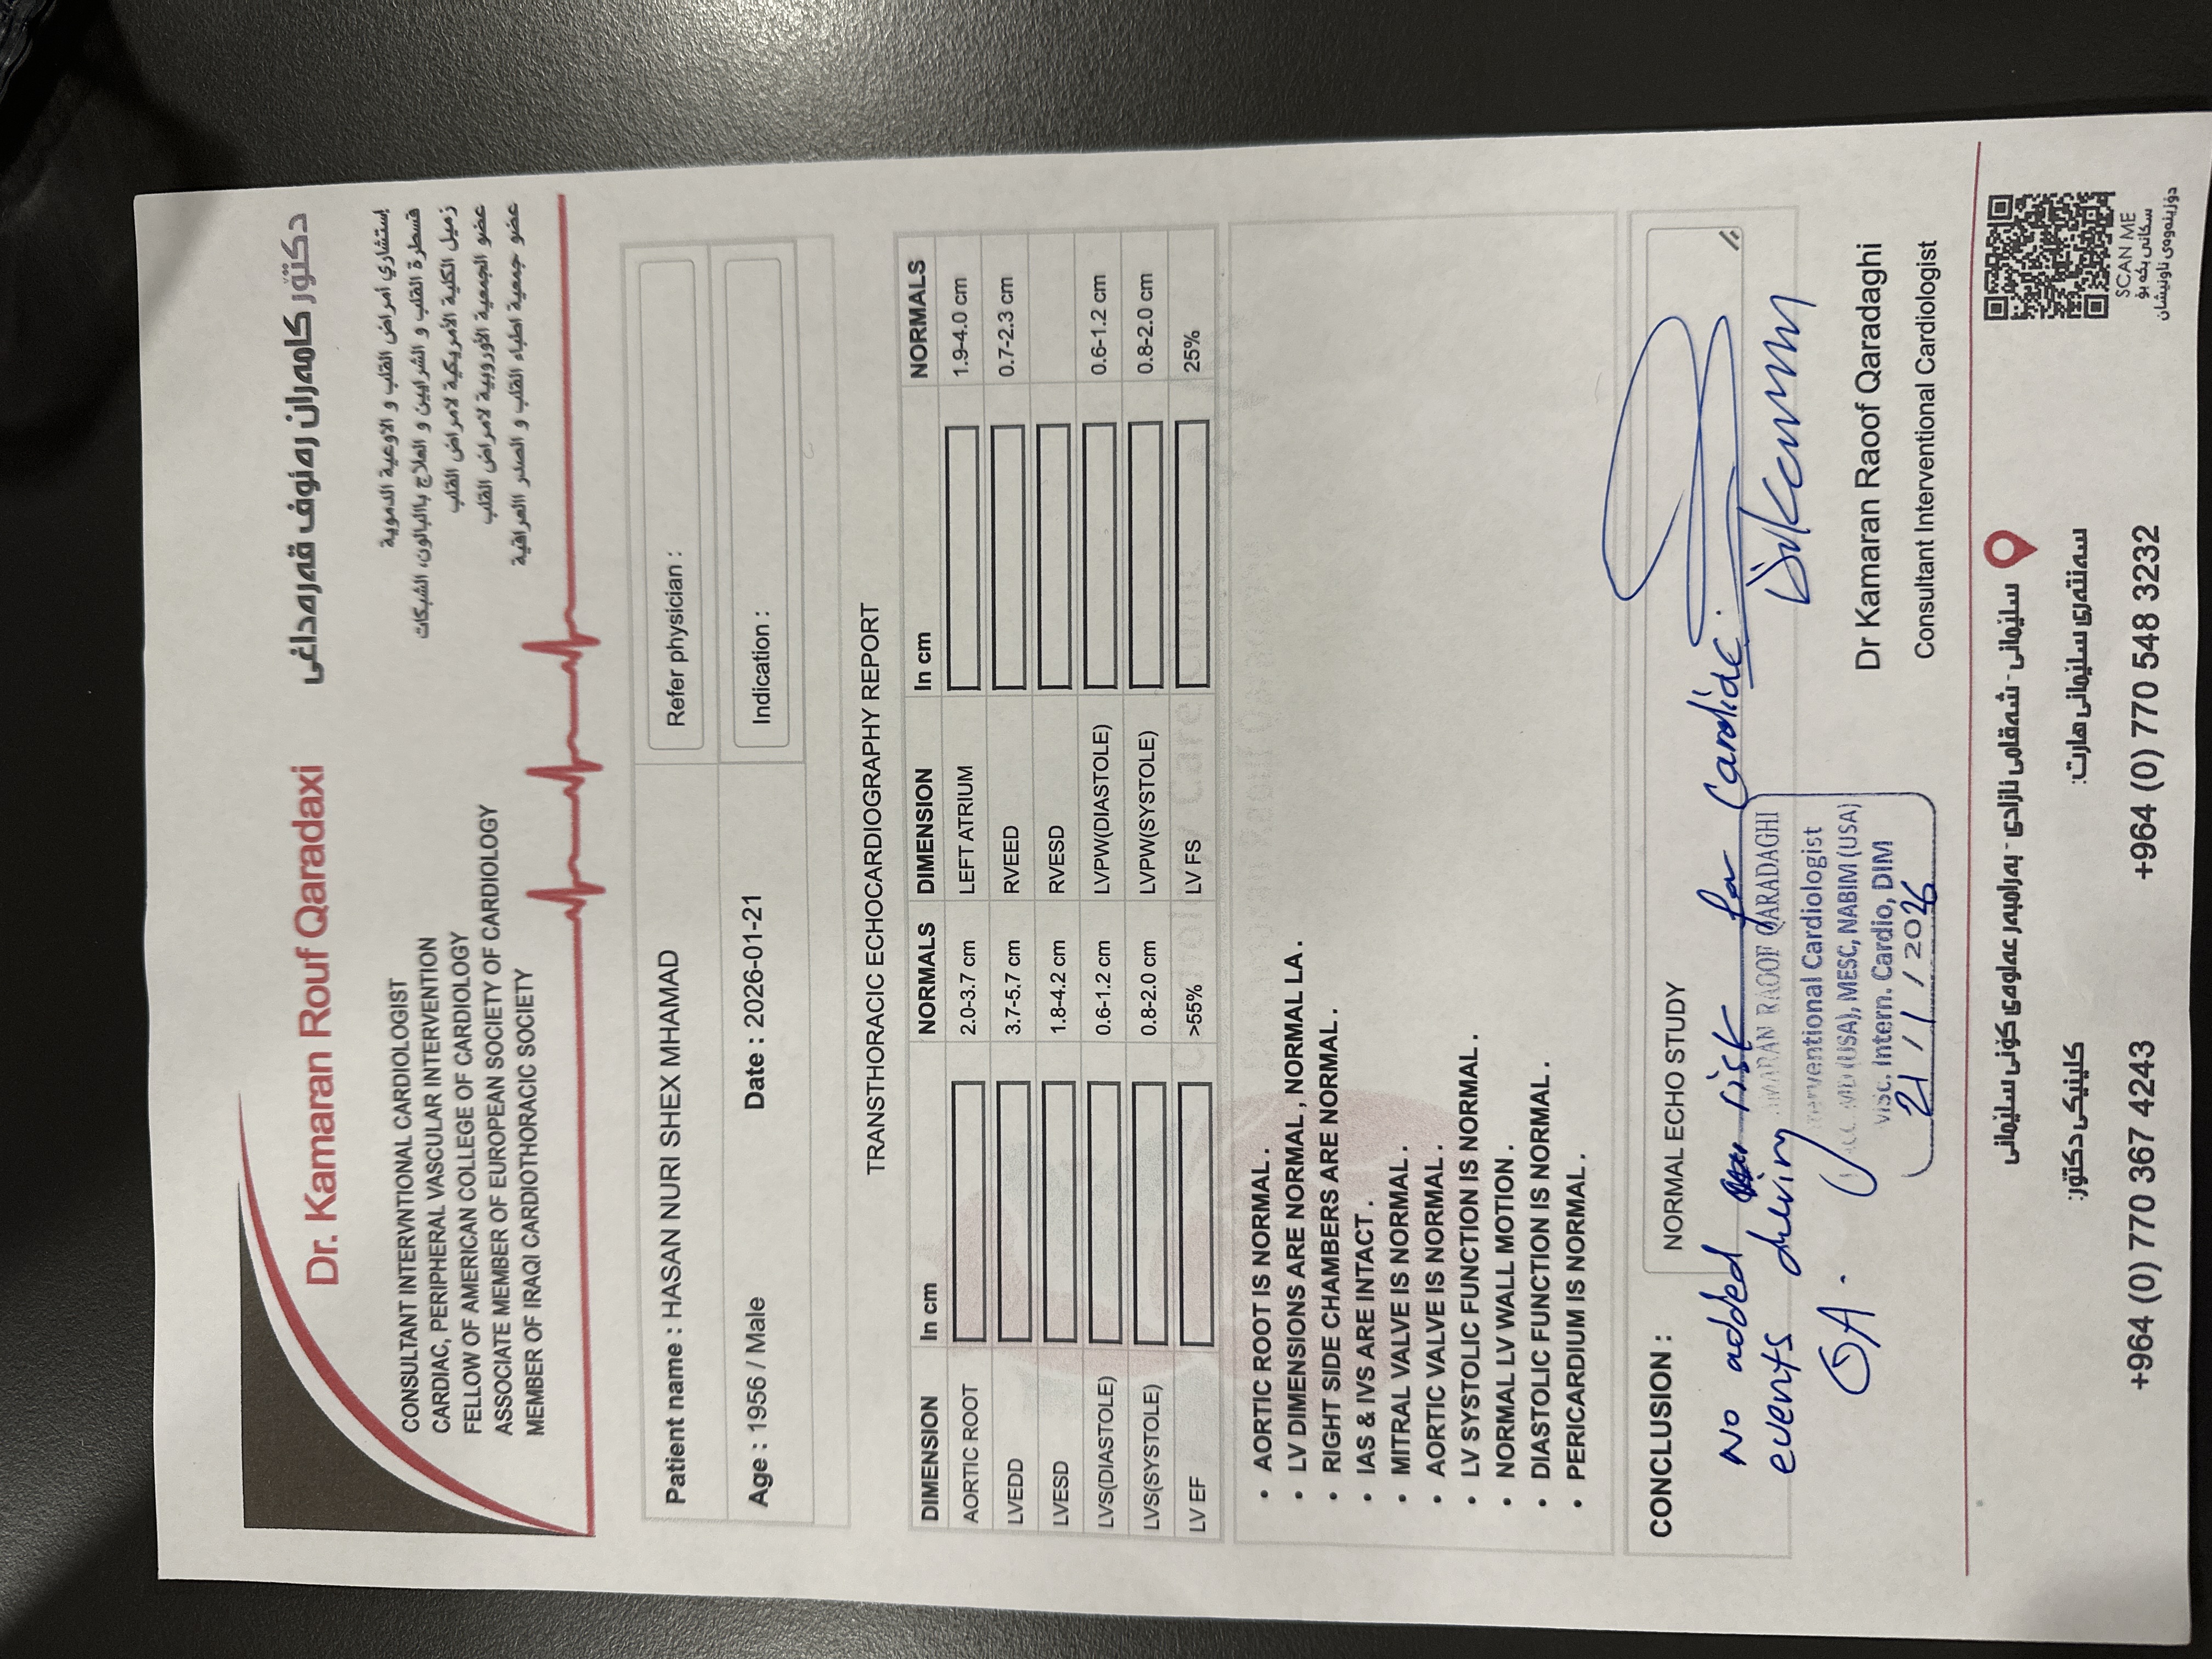 Dr. Kamaran Rouf Qaradaxi
دکتۆر کامەران رەئوف قەرەداغی
CONSULTANT INTERVNTIONAL CARDIOLOGIST
CARDIAC, PERIPHERAL VASCULAR INTERVENTION
FELLOW OF AMERICAN COLLEGE OF CARDIOLOGY
ASSOCIATE MEMBER OF EUROPEAN SOCIETY OF CARDIOLOGY
MEMBER OF IRAQI CARDIOTHORACIC SOCIETY
إستشاري امراض القلب و الاوعية الدموية
قسطرة القلب و الشرايين و العلاج بالبالون، الشبكات
زميل الكلية الأمريكية لامراض القلب
عضو الجمعية الأوروبية لامراض القلب
عضو جمعية اطباء القلب و الصدر العراقية
Patient name : HASAN NURI SHEX MHAMAD
Refer physician :
Age : 1956 / Male Date : 2026-01-21
Indication :
TRANSTHORACIC ECHOCARDIOGRAPHY REPORT
DIMENSION In cm NORMALS DIMENSION In cm NORMALS
AORTIC ROOT 2.0-3.7 cm LEFT ATRIUM 1.9-4.0 cm
LVEDD 3.7-5.7 cm RVEED 0.7-2.3 cm
LVESD 1.8-4.2 cm RVESD
LVS(DIASTOLE) 0.6-1.2 cm LVPW(DIASTOLE) 0.6-1.2 cm
LVS(SYSTOLE) 0.8-2.0 cm LVPW(SYSTOLE) 0.8-2.0 cm
LV EF >55% LV FS 25%
• AORTIC ROOT IS NORMAL .
• LV DIMENSIONS ARE NORMAL , NORMAL LA .
• RIGHT SIDE CHAMBERS ARE NORMAL .
• IAS & IVS ARE INTACT .
• MITRAL VALVE IS NORMAL .
• AORTIC VALVE IS NORMAL .
• LV SYSTOLIC FUNCTION IS NORMAL .
• NORMAL LV WALL MOTION .
• DIASTOLIC FUNCTION IS NORMAL .
• PERICARDIUM IS NORMAL .
CONCLUSION : NORMAL ECHO STUDY
No added risk for Cardiac
events during
GA.
RAOOF QARADAGHI
Interventional Cardiologist
(USA), MESC, NABIM (USA)
visc. Intern. Cardio, DIM
21 / 1 / 2026
Dr Kamaran Raoof Qaradaghi
Consultant Interventional Cardiologist
سلێمانی - شەقامی ئازادی - بەرامبەر عەلوەی کۆنی سلێمانی
کلینیکی دکتۆر:
سەنتەری سلێمانی هارت:
+964 (0) 770 367 4243
+964 (0) 770 548 3232
SCAN ME
سکانی بکە بۆ
دۆزینەوەی ناونیشان